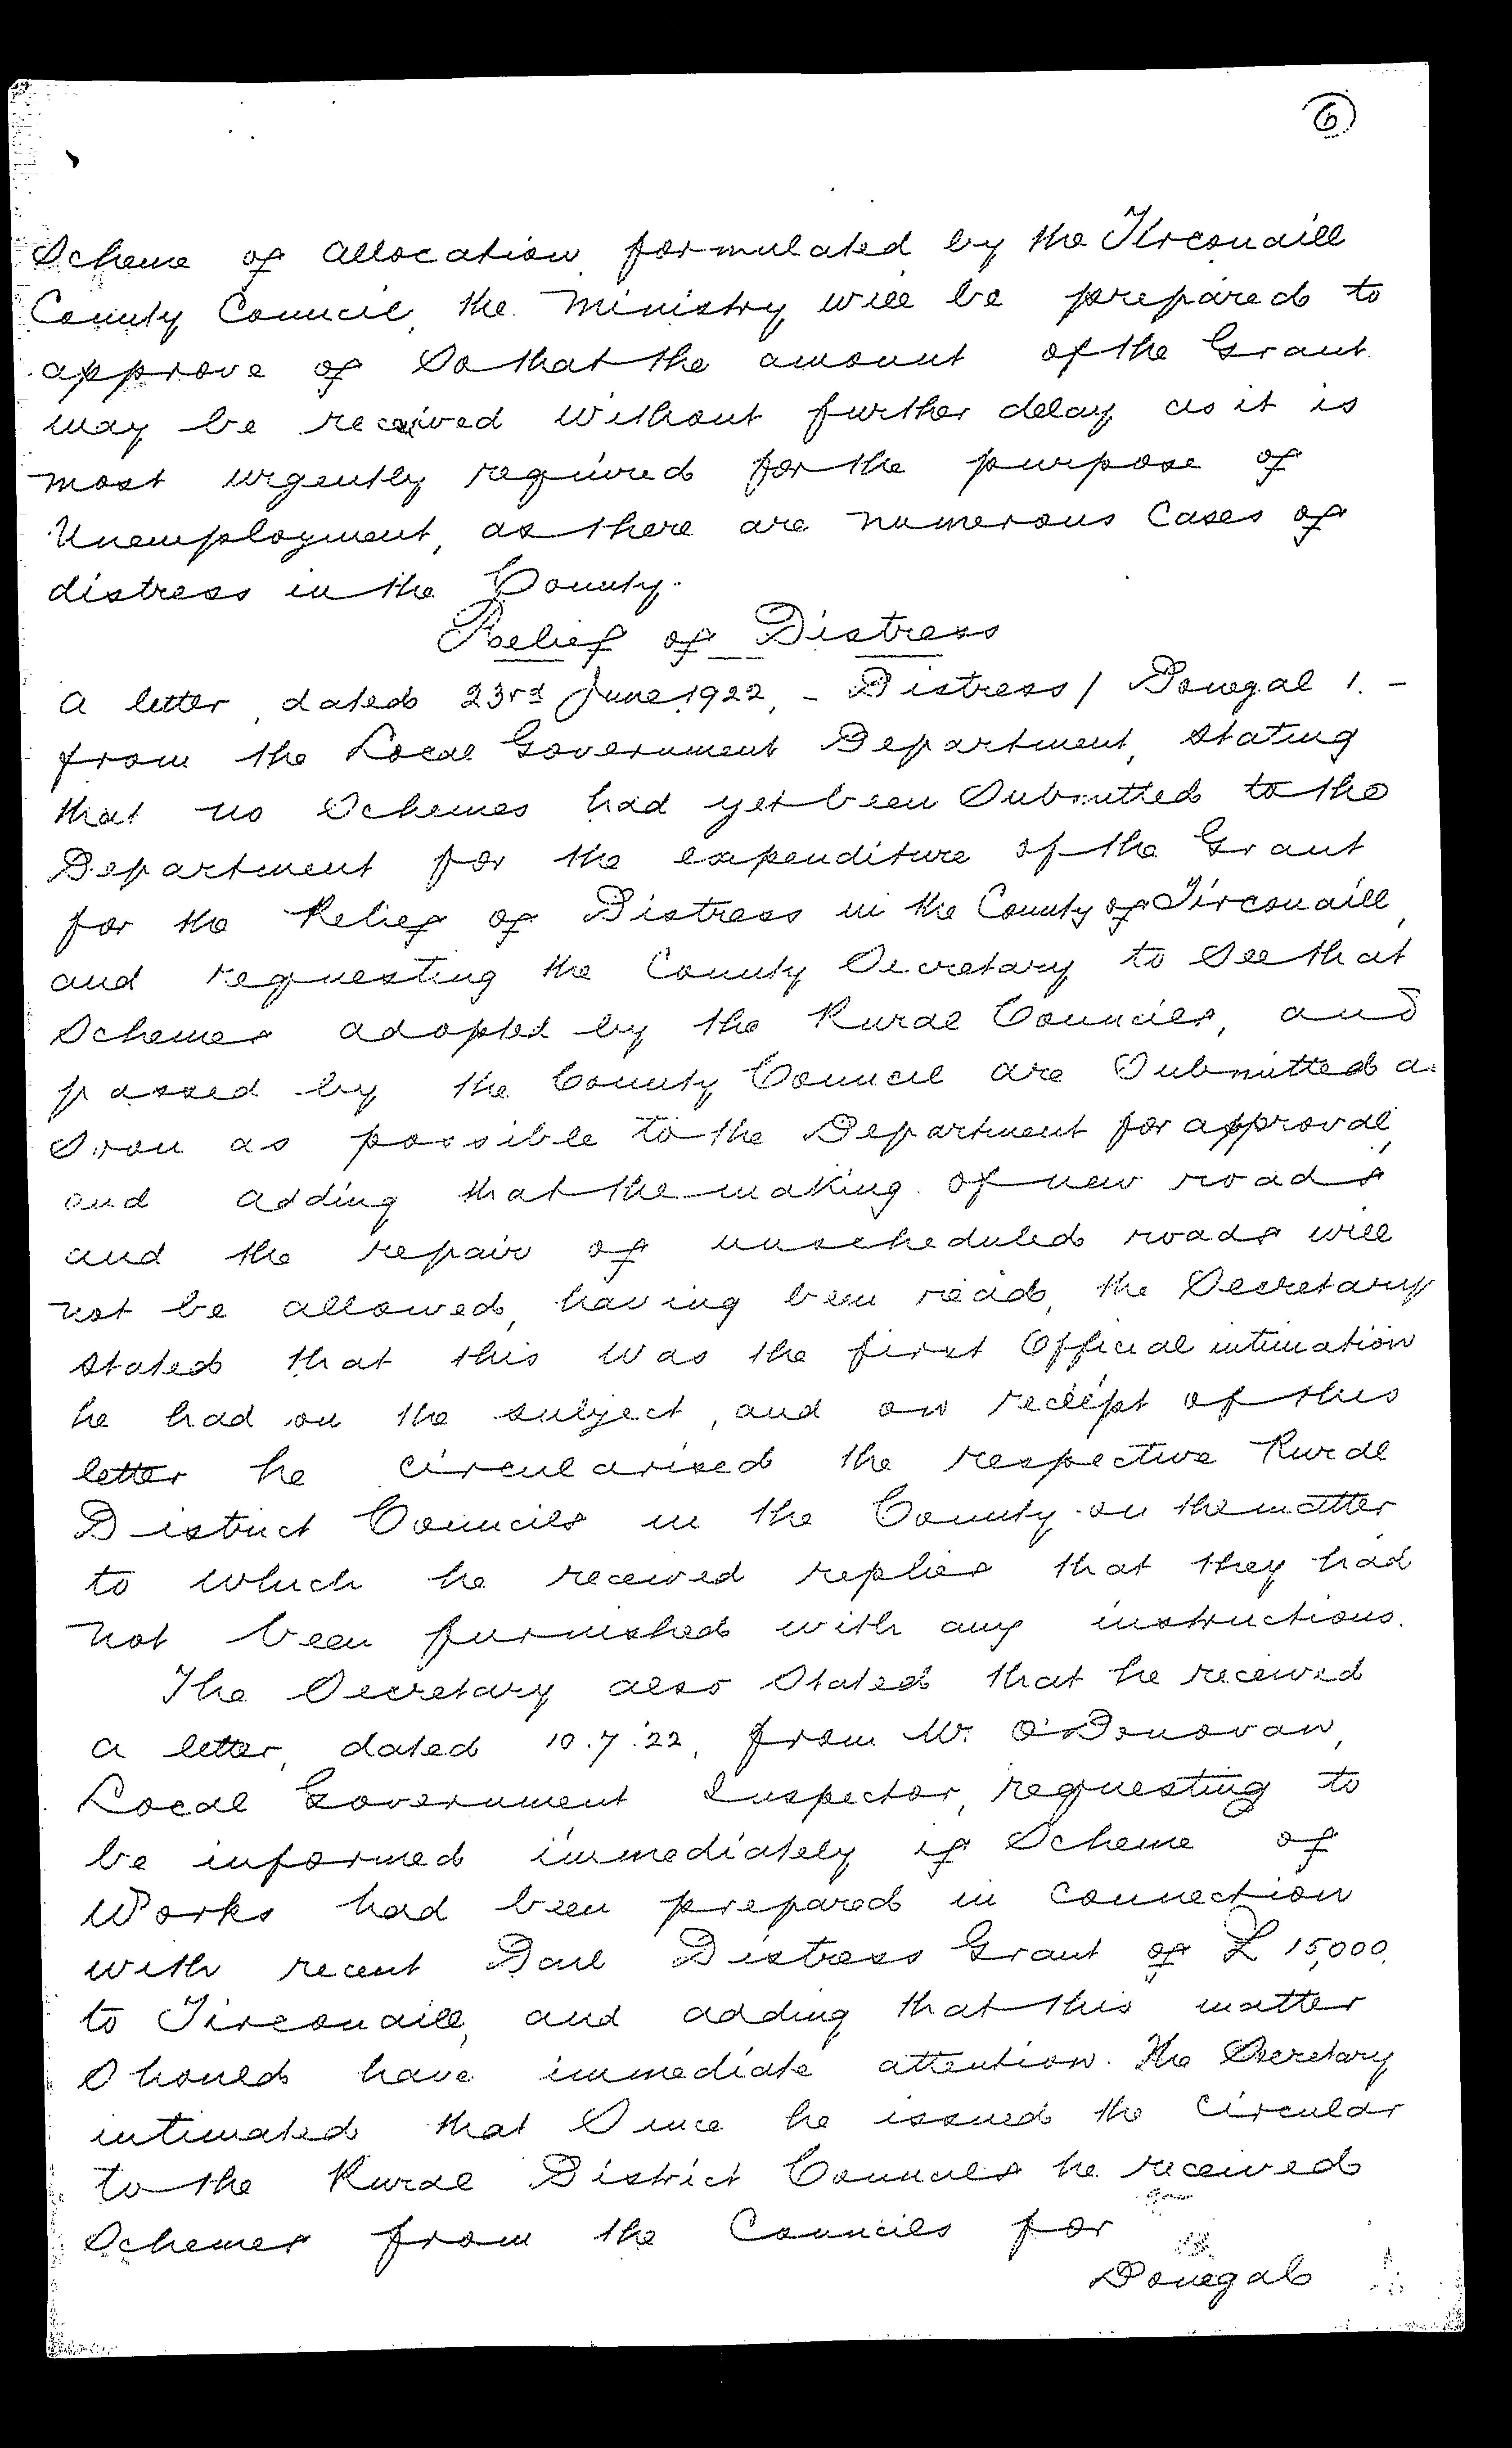 6
Scheme of allocation formulated by the Tirconaill
County Council, the Ministry will be prepared to
approve of so that the amount of the Grant
may be received without further delay as it is
most urgently required for the purpose of
Unemployment, as there are numerous cases of
distress in the County.
Relief of Distress
A letter, dated 23rd June 1922, - Distress / Donegal 1. -
from the Local Government Department, stating
that no Schemes had yet been Submitted to the
Department for the expenditure of the Grant
for the Relief of Distress in the County of Tirconaill,
and requesting the County Secretary to See that
Schemes adopted by the Rural Councils, and
passed by the County Council are Submitted as
Soon as possible to the Department for approval,
and adding that the making of new roads
and the repair of unscheduled roads will
not be allowed, having been read, the Secretary
stated that this was the first Official intimation
he had on the subject, and on receipt of this
letter he circularised the respective Rural
District Councils in the County on the matter
to which he received replies that they had
not been furnished with any instructions.
The Secretary also Stated that he received
a letter, dated 10.7.'22, from Mr. O'Donovan,
Local Government Inspector, requesting to
be informed immediately if Scheme of
Works had been prepared in connection
with recent Dail Distress Grant of £15,000
to Tirconaill, and adding that this matter
Should have immediate attention. The Secretary
intimated that Since he issued the Circular
to the Rural District Councils he received
Schemes from the Councils for
Donegal